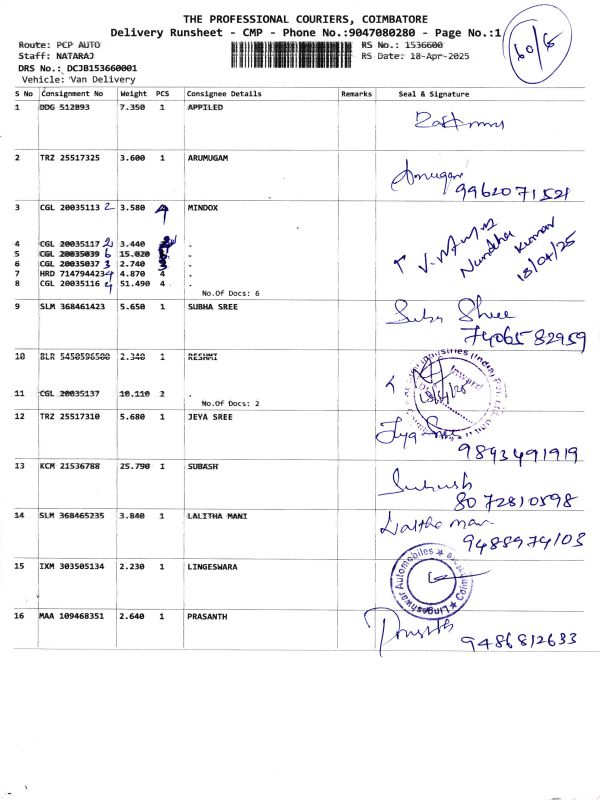 THE PROFESSIONAL COURIERS, COIMBATORE
Delivery Runsheet - CMP - Phone No.:9047080280 - Page No.:1
60/6
Route: PCP AUTO
RS No.: 1536600
Staff: NATARAJ
RS Date: 18-Apr-2025
DRS No.: DCJB153660001
Vehicle: Van Delivery
S No Consignment No Weight PCS Consignee Details Remarks Seal & Signature
1 DDG 512893 7.350 1 APPILED
2 TRZ 25517325 3.600 1 ARUMUGAM
Arumugam
9962071521
3 CGL 20035113 2 3.580 4 MINDOX
4 CGL 20035117 2 3.440 .
5 CGL 20035039 6 15.020 .
6 CGL 20035037 3 2.740 .
7 HRD 714794423 4 4.870 4 .
8 CGL 20035116 4 51.490 4 .
No.Of Docs: 6
Nandha Kumar
18/04/25
9 SLM 368461423 5.650 1 SUBHA SREE
Suba Shree
7406582959
10 BLR 5450596500 2.340 1 RESHMI
11 CGL 20035137 10.110 2 .
No.Of Docs: 2
Industries (India)
Inward
18/4/25
12 TRZ 25517310 5.680 1 JEYA SREE
Jeya Sree
9893491919
13 KCM 21536788 25.790 1 SUBASH
Subash
8072810598
14 SLM 368465235 3.840 1 LALITHA MANI
Lalitha Mani
9488974103
15 IXM 303505134 2.230 1 LINGESWARA
Lingeshwar Automobiles
16 MAA 109468351 2.640 1 PRASANTH
9486812633